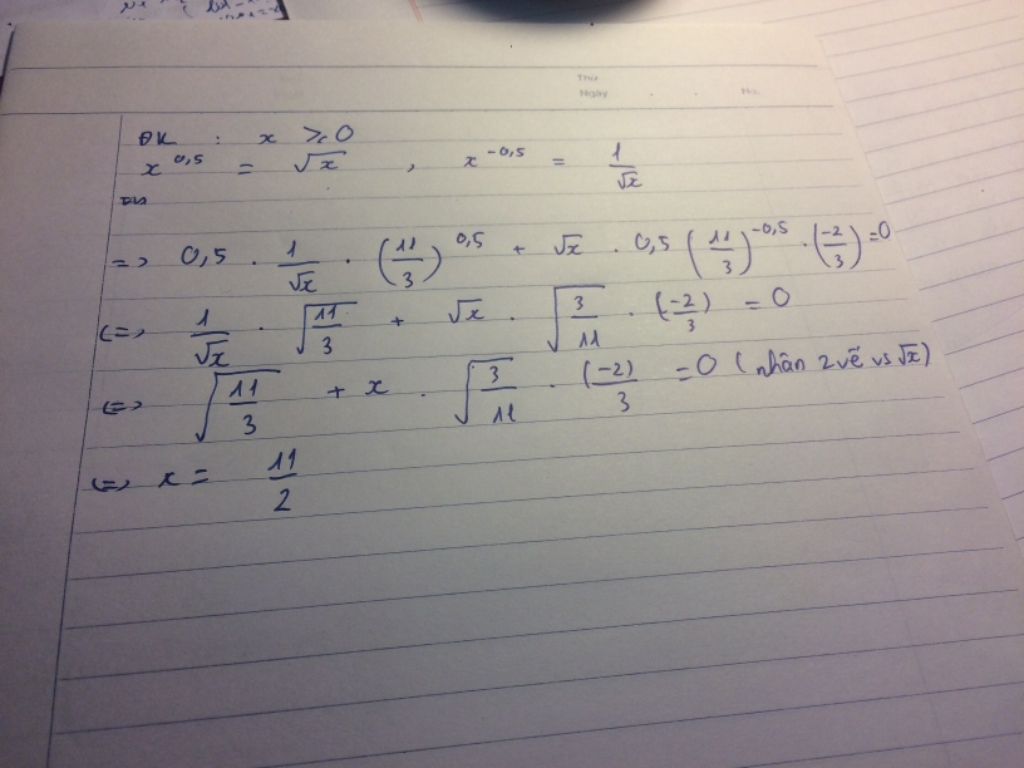 Thứ
Ngày . . No.
ĐK : x ≥ 0
x^0,5 = √x , x^-0,5 = 1/√x
=> 0,5 . 1/√x . (11/3)^0,5 + √x . 0,5 (11/3)^-0,5 . (-2/3) = 0
(=) 1/√x . √(11/3) + √x . √(3/11) . (-2)/3 = 0
(=) √(11/3) + x . √(3/11) . (-2)/3 = 0 ( nhân 2 vế vs √x )
(=) x = 11/2